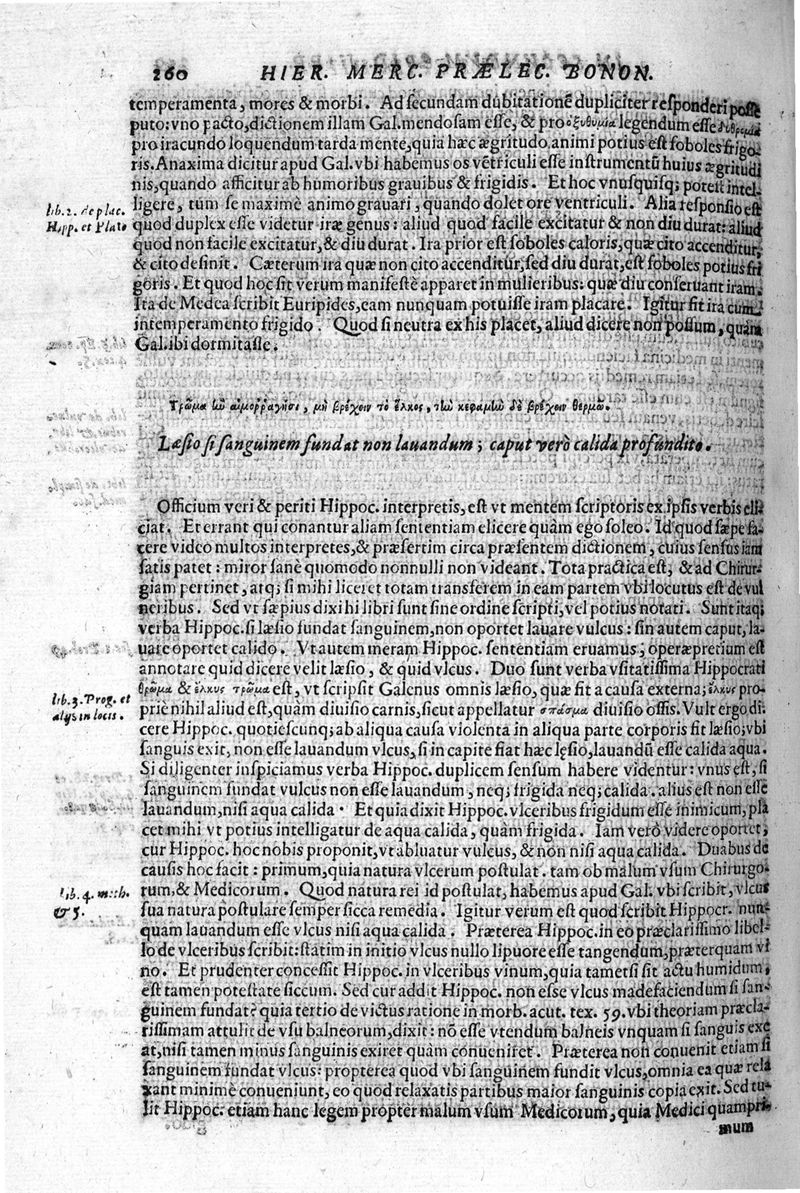 260 HIER. MERC. PRÆLEC. BONON.
temperamenta, mores & morbi. Ad secundam dubitationẽ dupliciter responderi posse
puto: vno pacto, dictionem illam Gal. mendosam esse, & pro ὀξυθυμία legendum esse
pro iracundo loquendum tarda mente, quia hæc ægritudo animi potius est soboles frigo
ris. Anaxima dicitur apud Gal. vbi habemus os vẽtriculi esse instrumentũ huius ægritudi
nis, quando afficitur ab humoribus grauibus & frigidis. Et hoc vnusquisq; potest intel-
lib. 2. de plac. ligere, tum se maximè animo grauari, quando dolet ore ventriculi. Alia responsio est
Hipp. et Plato quod duplex esse videtur iræ genus: aliud quod facile excitatur & non diu durat: aliud
quod non facile excitatur, & diu durat. Ira prior est soboles caloris, quæ cito accenditur,
& cito desinit. Cæterum ira quæ non cito accenditur, sed diu durat, est soboles potius fri
goris. Et quod hoc sit verum manifestè apparet in mulieribus: quæ diu conseruant iram.
Ita de Medea scribit Euripides, eam nunquam potuisse iram placare. Igitur sit ira cum
intemperamento frigido. Quod si neutra ex his placet, aliud dicere non possum, quàm
Gal. ibi dormitasse.
Τρῶμα ἢν αἱμοῤῥαγήσι, μὴ βρέχειν τὸ ἕλκος, τὴν κεφαλὴν δὲ βρέχειν θερμῷ.
Læsio si sanguinem fundat non lauandum; caput verò calida profundito.
Officium veri & periti Hippoc. interpretis, est vt mentem scriptoris ex ipsis verbis elli
ciat. Et errant qui conantur aliam sententiam elicere quàm ego soleo. Id quod sæpe fa-
cere video multos interpretes, & præsertim circa præsentem dictionem, cuius sensus iam
satis patet: miror sanè quomodo nonnulli non videant. Tota practica est, & ad Chirur-
giam pertinet, atq; si mihi liceret totam transferem in eam partem vbi locutus est de vul
neribus. Sed vt sæpius dixi hi libri sunt sine ordine scripti, vel potius notati. Sunt itaq;
verba Hippoc. si læsio fundat sanguinem, non oportet lauare vulcus: sin autem caput, la-
uare oportet calido. Vt autem meram Hippoc. sententiam eruamus, operæpretium est
annotare quid dicere velit læsio, & quid vlcus. Duo sunt verba vsitatissima Hippocrati
lib. 3. Prog. et θρωμα & ἕλκυς τρωμα est, vt scripsit Galenus omnis læsio, quæ fit a causa externa; ἕλκυς pro-
alys in locis. priè nihil aliud est, quàm diuisio carnis, sicut appellatur σπάσμα diuisio ossis. Vult ergo di-
cere Hippoc. quotiescunq; ab aliqua causa violenta in aliqua parte corporis fit læsio, vbi
sanguis exit, non esse lauandum vlcus, si in capite fiat hæc lęsio, lauandũ esse calida aqua.
Si diligenter inspiciamus verba Hippoc. duplicem sensum habere videntur: vnus est, si
sanguinem fundat vulcus non esse lauandum, neq; frigida neq; calida. alius est non esse
lauandum, nisi aqua calida. Et quia dixit Hippoc. vlceribus frigidum esse inimicum, pla
cet mihi vt potius intelligatur de aqua calida, quàm frigida. Iam verò videre oportet,
cur Hippoc. hoc nobis proponit, vt abluatur vulcus, & non nisi aqua calida. Duabus de
causis hoc facit: primum, quia natura vlcerum postulat. tam ob malum vsum Chirurgo-
lib. 4. meth. rum, & Medicorum. Quod natura rei id postulat, habemus apud Gal. vbi scribit, vlcus
& 5. sua natura postulare semper sicca remedia. Igitur verum est quod scribit Hippocr. nun-
quam lauandum esse vlcus nisi aqua calida. Præterea Hippoc. in eo præclarissimo libel-
lo de vlceribus scribit: statim in initio vlcus nullo lipuore esse tangendum, præterquam vi
no. Et prudenter concessit Hippoc. in vlceribus vinum, quia tametsi sit actu humidum,
est tamen potestate siccum. Sed cur addit Hippoc. non esse vlcus madefaciendum si san-
guinem fundat? quia tertio de victus ratione in morb. acut. tex. 59. vbi theoriam præcla-
rissimam attulit de vsu balneorum, dixit: nõ esse vtendum balneis vnquam si sanguis exe
at, nisi tamen minus sanguinis exiret quàm conueniret. Præterea non conuenit etiam si
sanguinem fundat vlcus: propterea quod vbi sanguinem fundit vlcus, omnia ea quæ rela
xant minimè conueniunt, eo quod relaxatis partibus maior sanguinis copia exit. Sed tu-
lit Hippoc. etiam hanc legem propter malum vsum Medicorum, quia Medici quampri-
mum